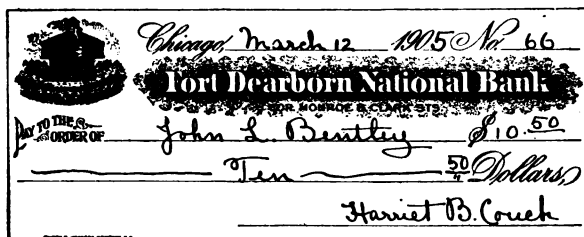 Chicago, March 12 1905 No. 66
Fort Dearborn National Bank
COR. MONROE & CLARK STS.
PAY TO THE ORDER OF John L. Bentley $10.50
Ten 50/" Dollars
Harriet B. Couch